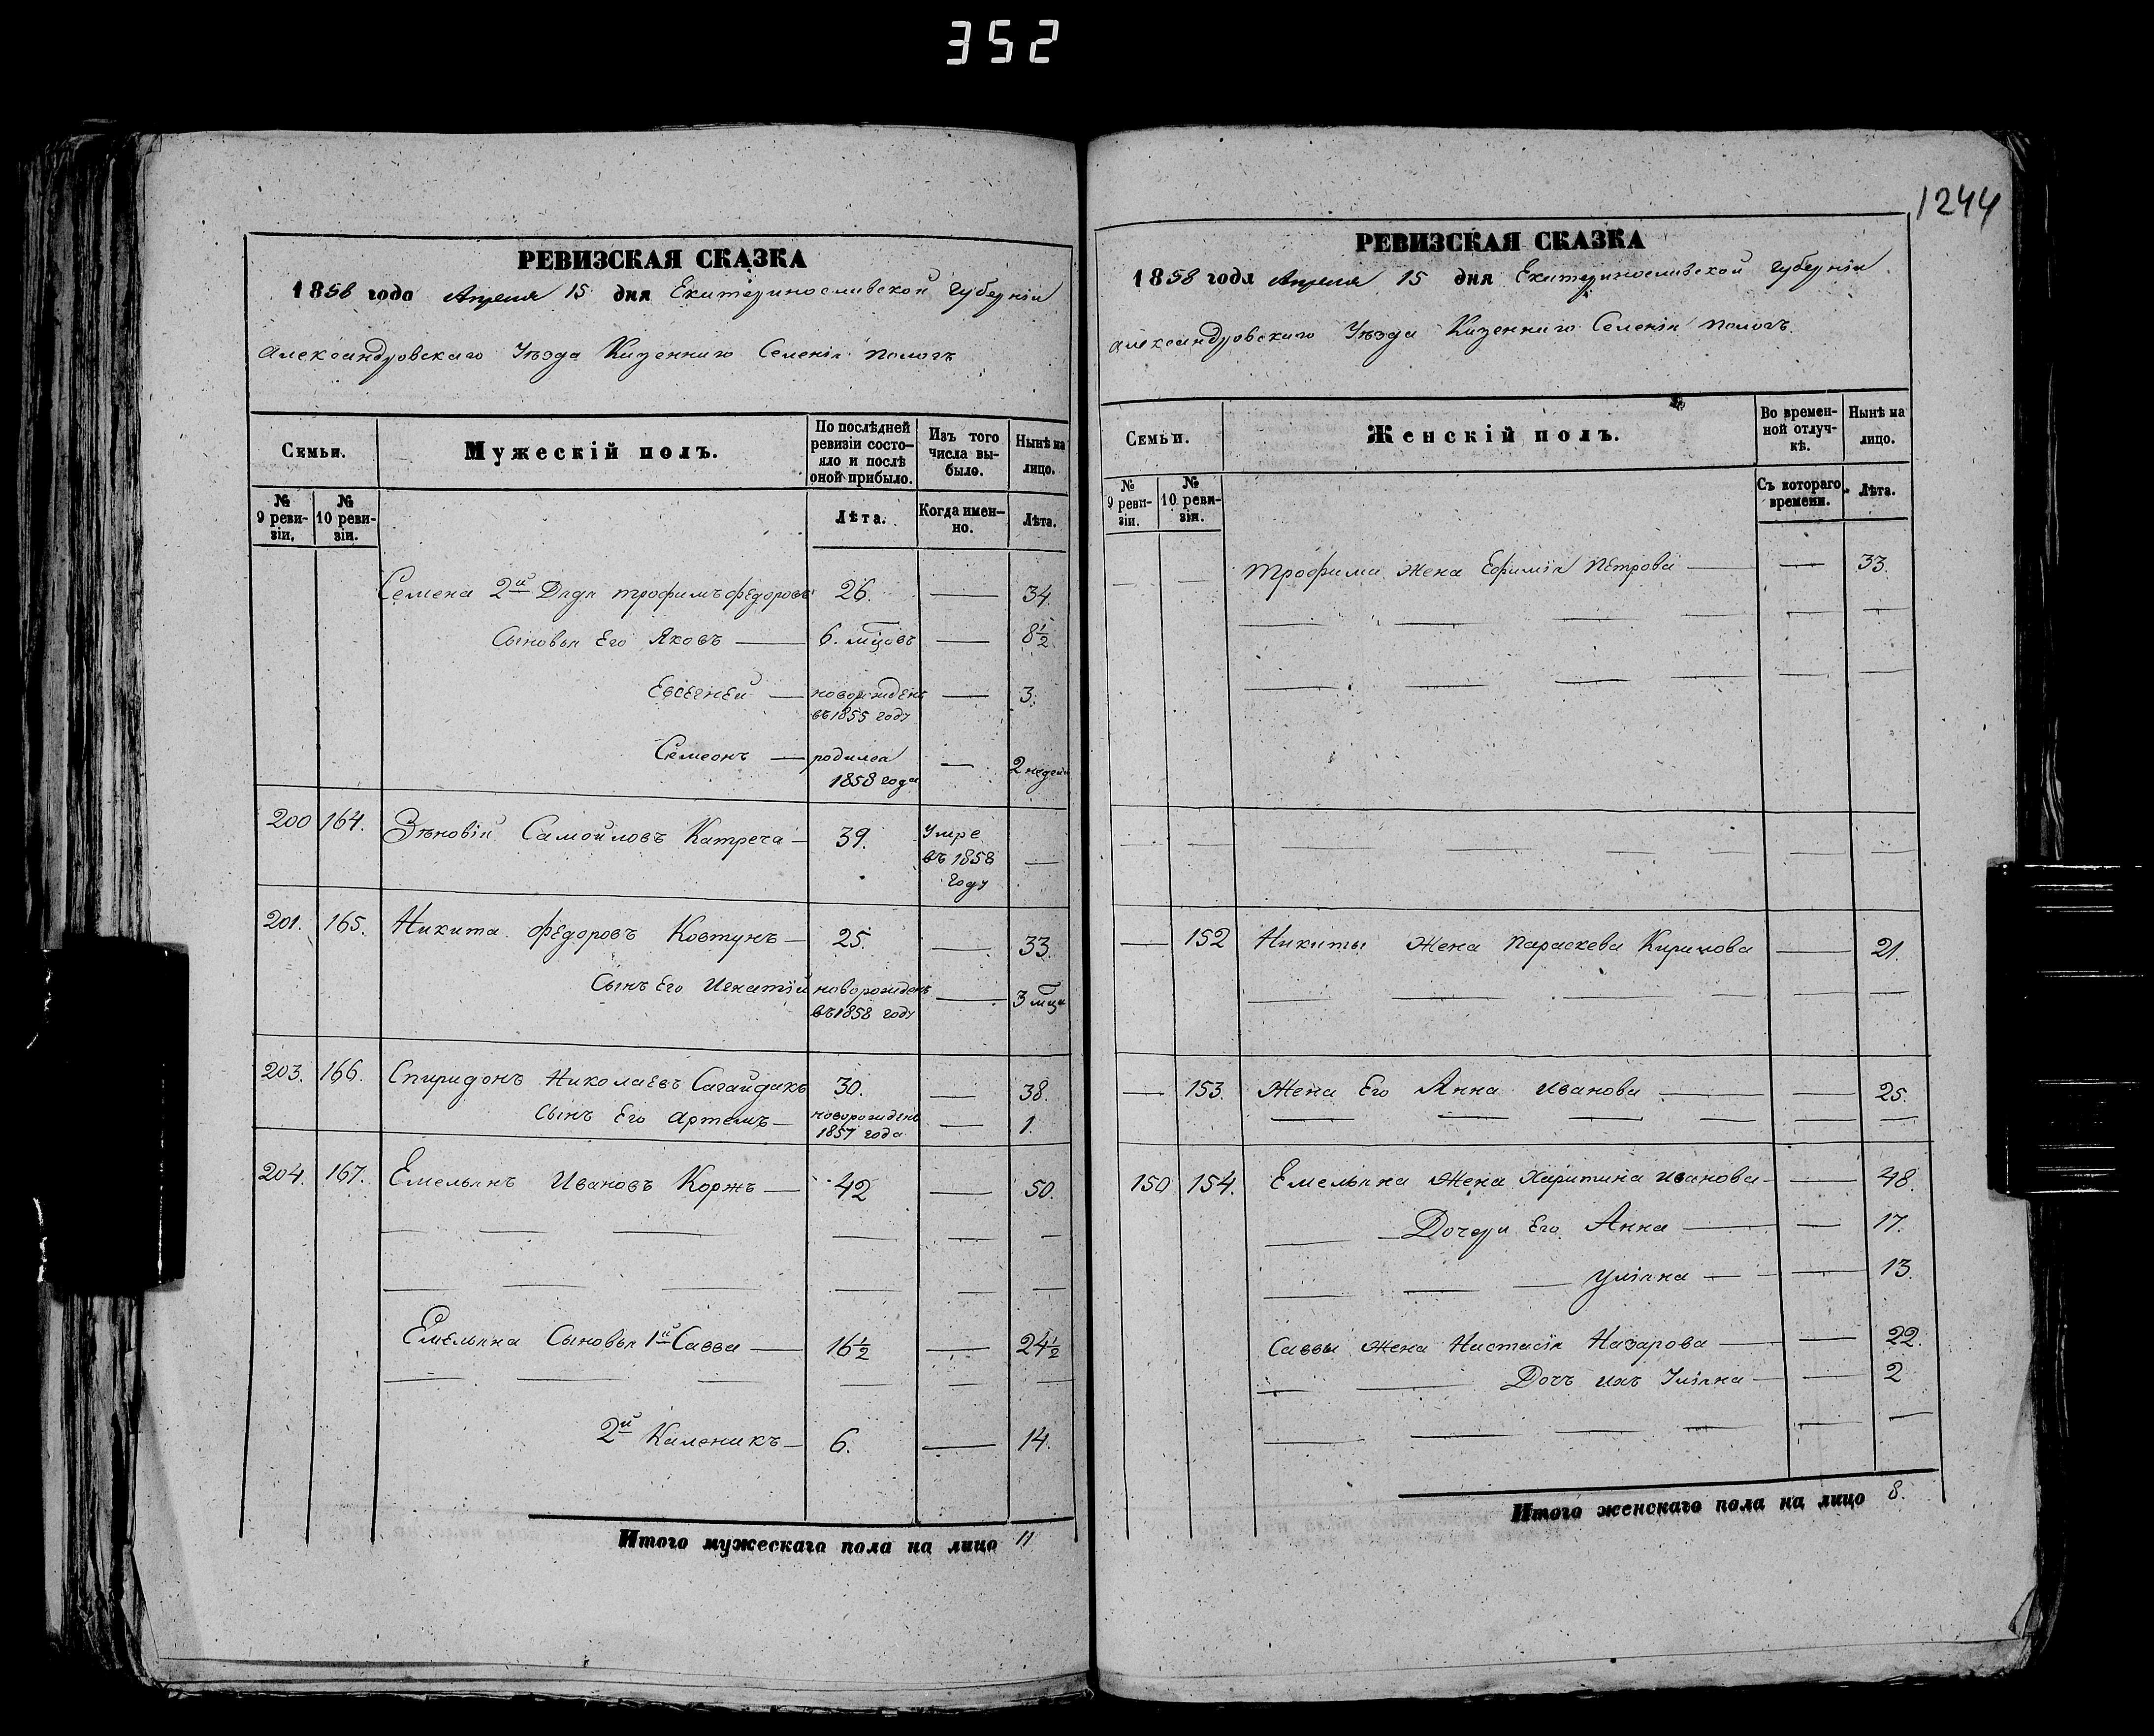 352
1244
РЕВИЗСКАЯ СКАЗКА
1858 года Апреля 15 дня Екатеринославской Губерніи
Александровскаго Уѣзда Казеннаго Селенія Пологъ
Семьи.
Мужескій полъ.
По послѣдней ревизіи состояло и послѣ оной прибыло.
Изъ того числа выбыло.
Нынѣ на лицо.
№ 9 ревизіи.
№ 10 ревизіи.
Лѣта.
Когда именно.
Лѣта.
Семена 2й Дядя Трофимъ Федоровъ 26. — 34.
Сыновья Его Яковъ — 6. мцовъ — 8½
Евсегней — новорожденъ въ 1855 году — 3.
Семеонъ — родился 1858 года — 2 недели
200 164. Зѣновій Самойловъ Катреча — 39. Умре въ 1858 году —
201. 165. Никита Федоровъ Ковтунъ — 25. — 33.
Сынъ Его Игнатій новорожденъ въ 1858 году — 3 мца
203. 166. Спиридонъ Николаевъ Сагайдакъ 30. — 38.
Сынъ Его Артемъ — новорожденъ 1857 года — 1.
204. 167. Емельянъ Ивановъ Коржъ — 42 — 50.
Емельяна Сыновья 1й Савва — 16½ — 24½
2й Каленикъ — 6. — 14.
Итого мужескаго пола на лицо 11
РЕВИЗСКАЯ СКАЗКА
1858 года Апреля 15 дня Екатеринославской Губерніи
Александровскаго Уѣзда Казеннаго Селенія Пологъ.
Семьи.
Женскій полъ.
Во временной отлучкѣ.
Нынѣ на лицо.
№ 9 ревизіи.
№ 10 ревизіи.
Съ котораго времени.
Лѣта.
— — Трофима Жена Ефимія Петрова — — 33.
— 152 Никиты Жена Параскева Кирилова — 21.
— 153. Жена Его Анна Иванова — — 25.
150 154. Емельяна Жена Харитина Иванова — — 48.
Дочери Его Анна — — 17.
Уліяна — — 13.
Саввы Жена Настасія Назарова — — 22.
Дочь ихъ Уліяна — — 2
Итого женскаго пола на лицо 8.